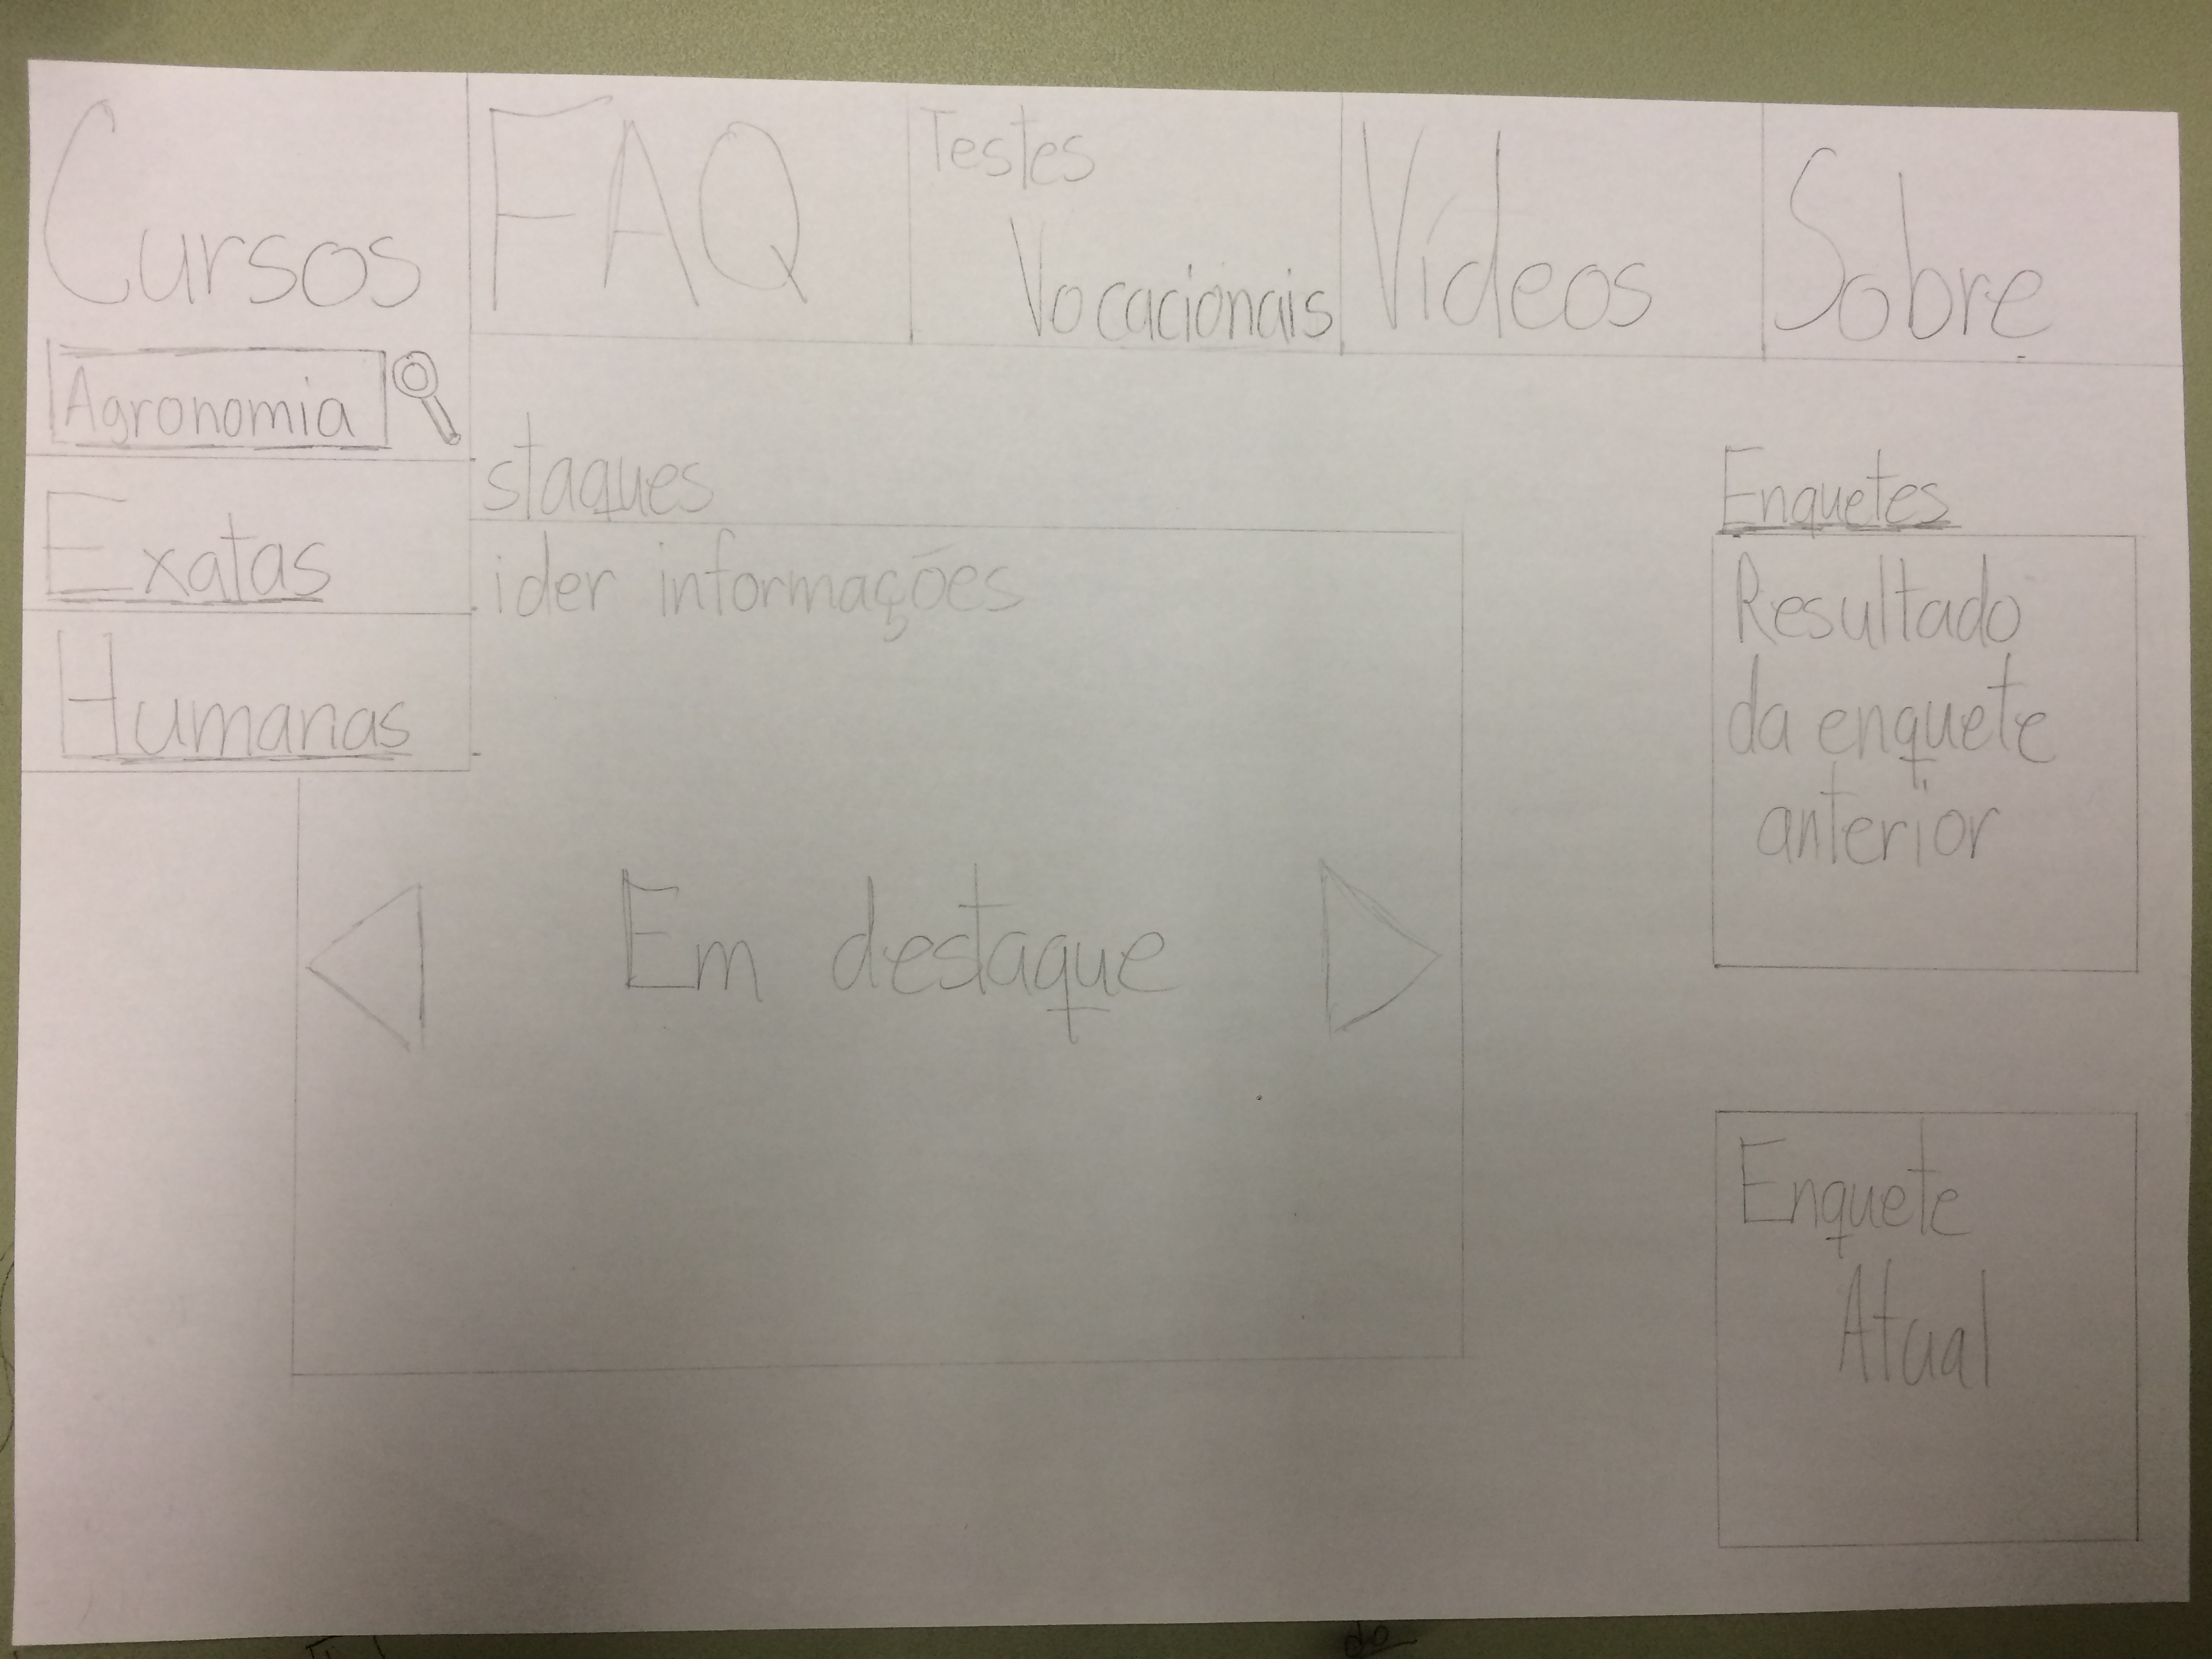 Cursos
FAQ
Testes
Vocacionais
Vídeos
Sobre
Agronomia
Exatas
Humanas
staques
ider informações
Em destaque
Enquetes
Resultado
da enquete
anterior
Enquete
Atual